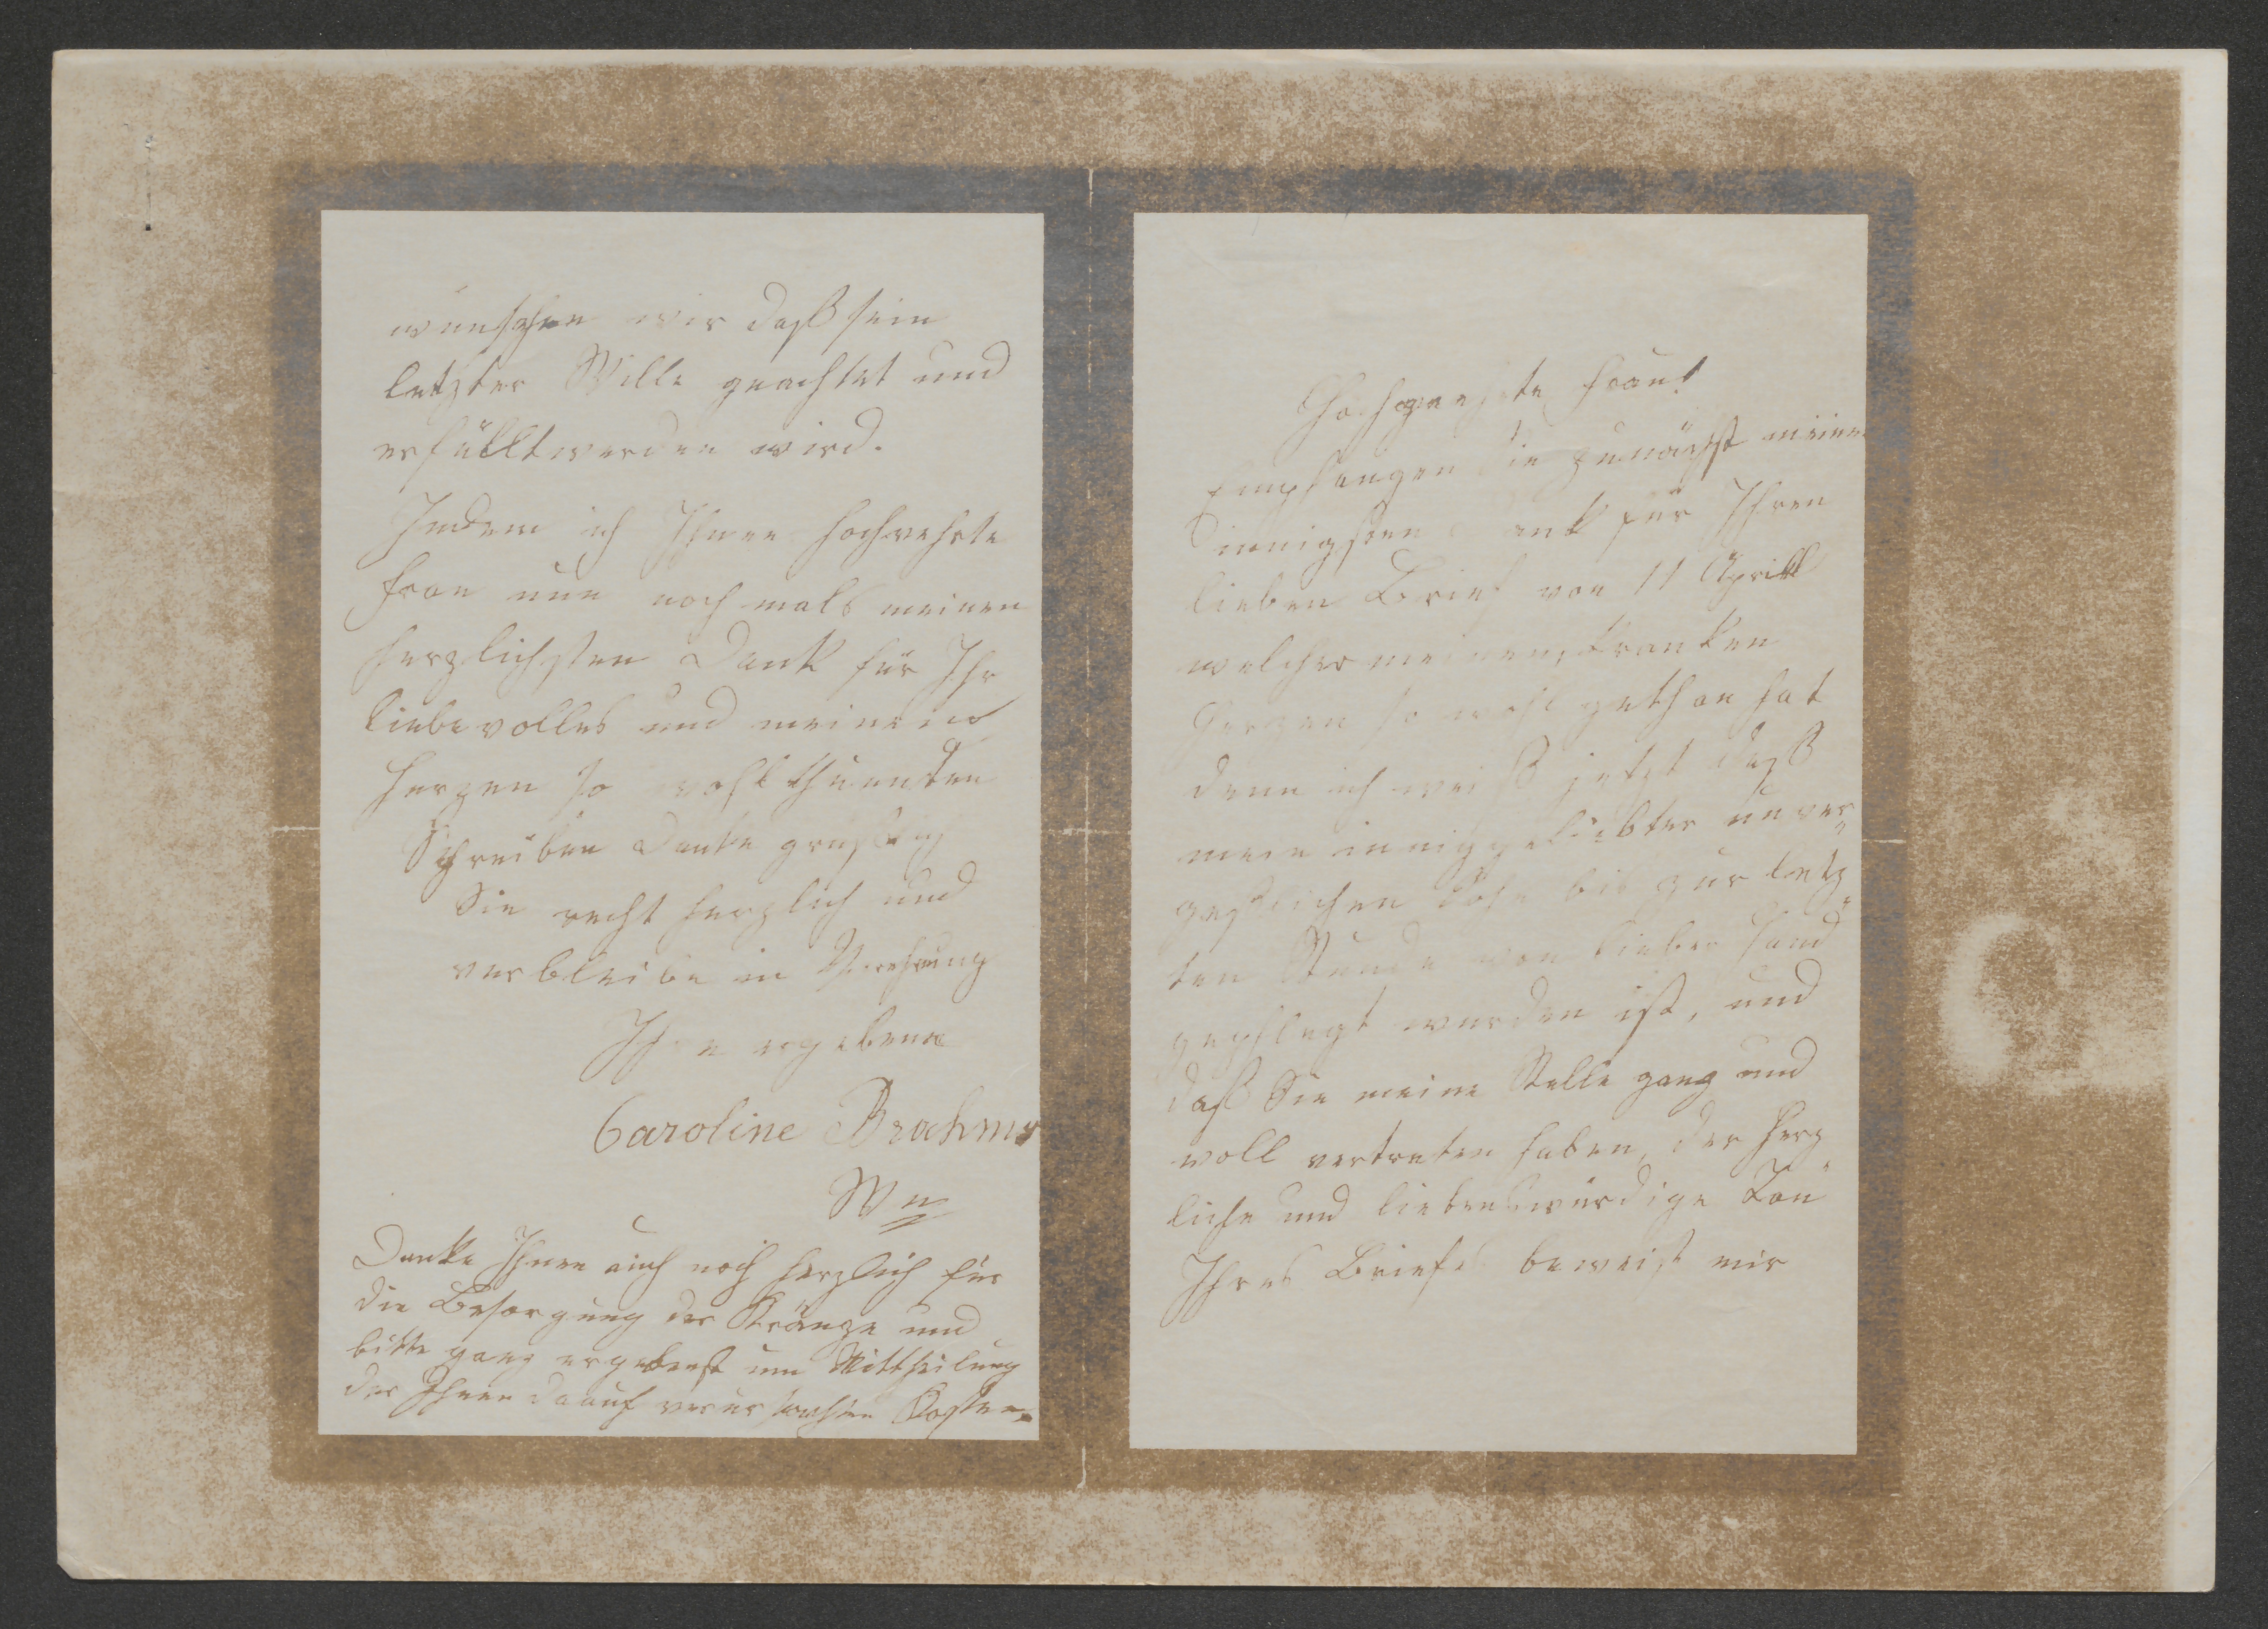 Hochgeehrte Frau!
Empfangen Sie zunächst meinen
innigsten Dank für Ihren
lieben Brief von 11 Aprill
welcher meinem kranken
Herzen so wohl gethan hat
denn ich weiß jetzt daß
mein inniggeliebter unver„
gesslichen Sohn bis zur letz„
ten Stunde von lieber Hand
gepflegt wurden ist, und
daß Sie meine Stelle ganz und
voll vertreten haben, der herz„
liche und liebenswürdige Ton
Ihres Briefes beweist mir
wünschen wir daß sein
letzter Wille geachtet und
erfüllt werden wird.
Indem ich Ihnen hochverehrte
Frau nun noch mals meinen
herzlichsten Dank für Ihr
liebevolles und meinem
Herzen so wohlthuenden
Schreiben Danke grüße ich
Sie recht herzlich und
verbleibe in Verehrung
Ihre ergebene
Caroline Brahms
Wn
Danke Ihnen auch noch herzlich für
die Besorgung der Kränze und
bitte ganz ergebenst um Mittheilung
der Ihnen daauf verursachten Kosten.